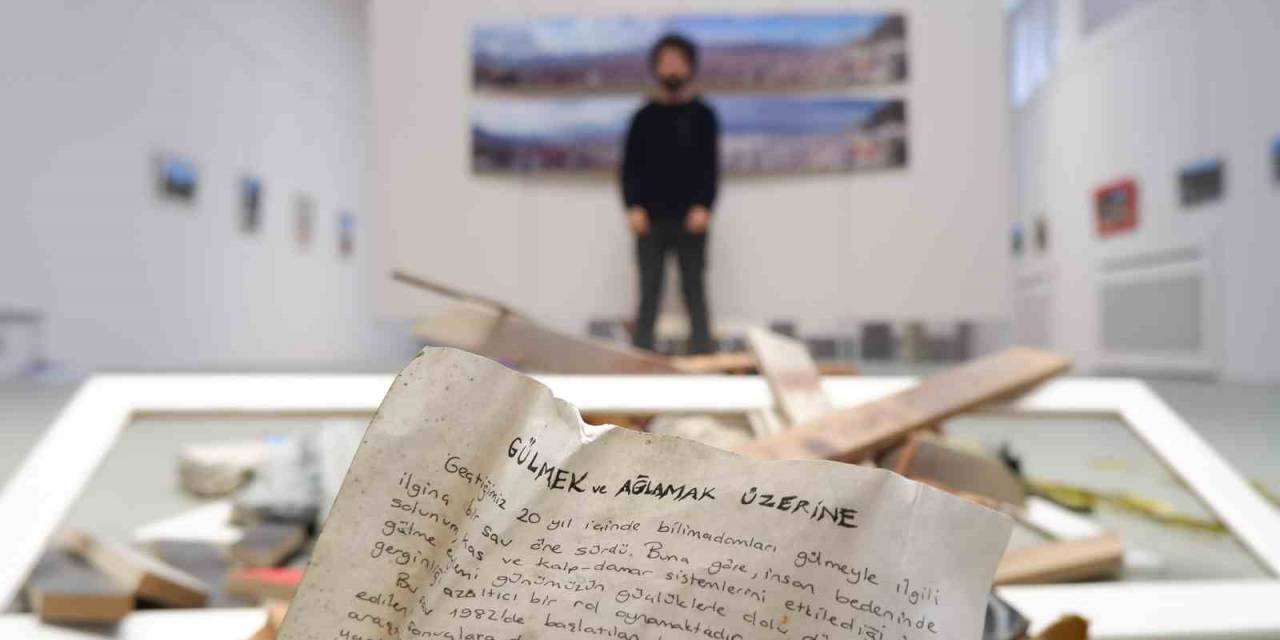 GÜLMEK ve AĞLAMAK ÜZERİNE
Geçtiğimiz 20 yıl içinde bilimadamları gülmeyle ilgili
ilginç bir sav öne sürdü. Buna göre, insan bedeninde
solunum, kas ve kalp-damar sistemlerini etkilediği
gülme eylemi günümüzün güçlüklerle dolu
azaltıcı bir rol oynamaktadır
Bu 1982'de başlatılan
edilen